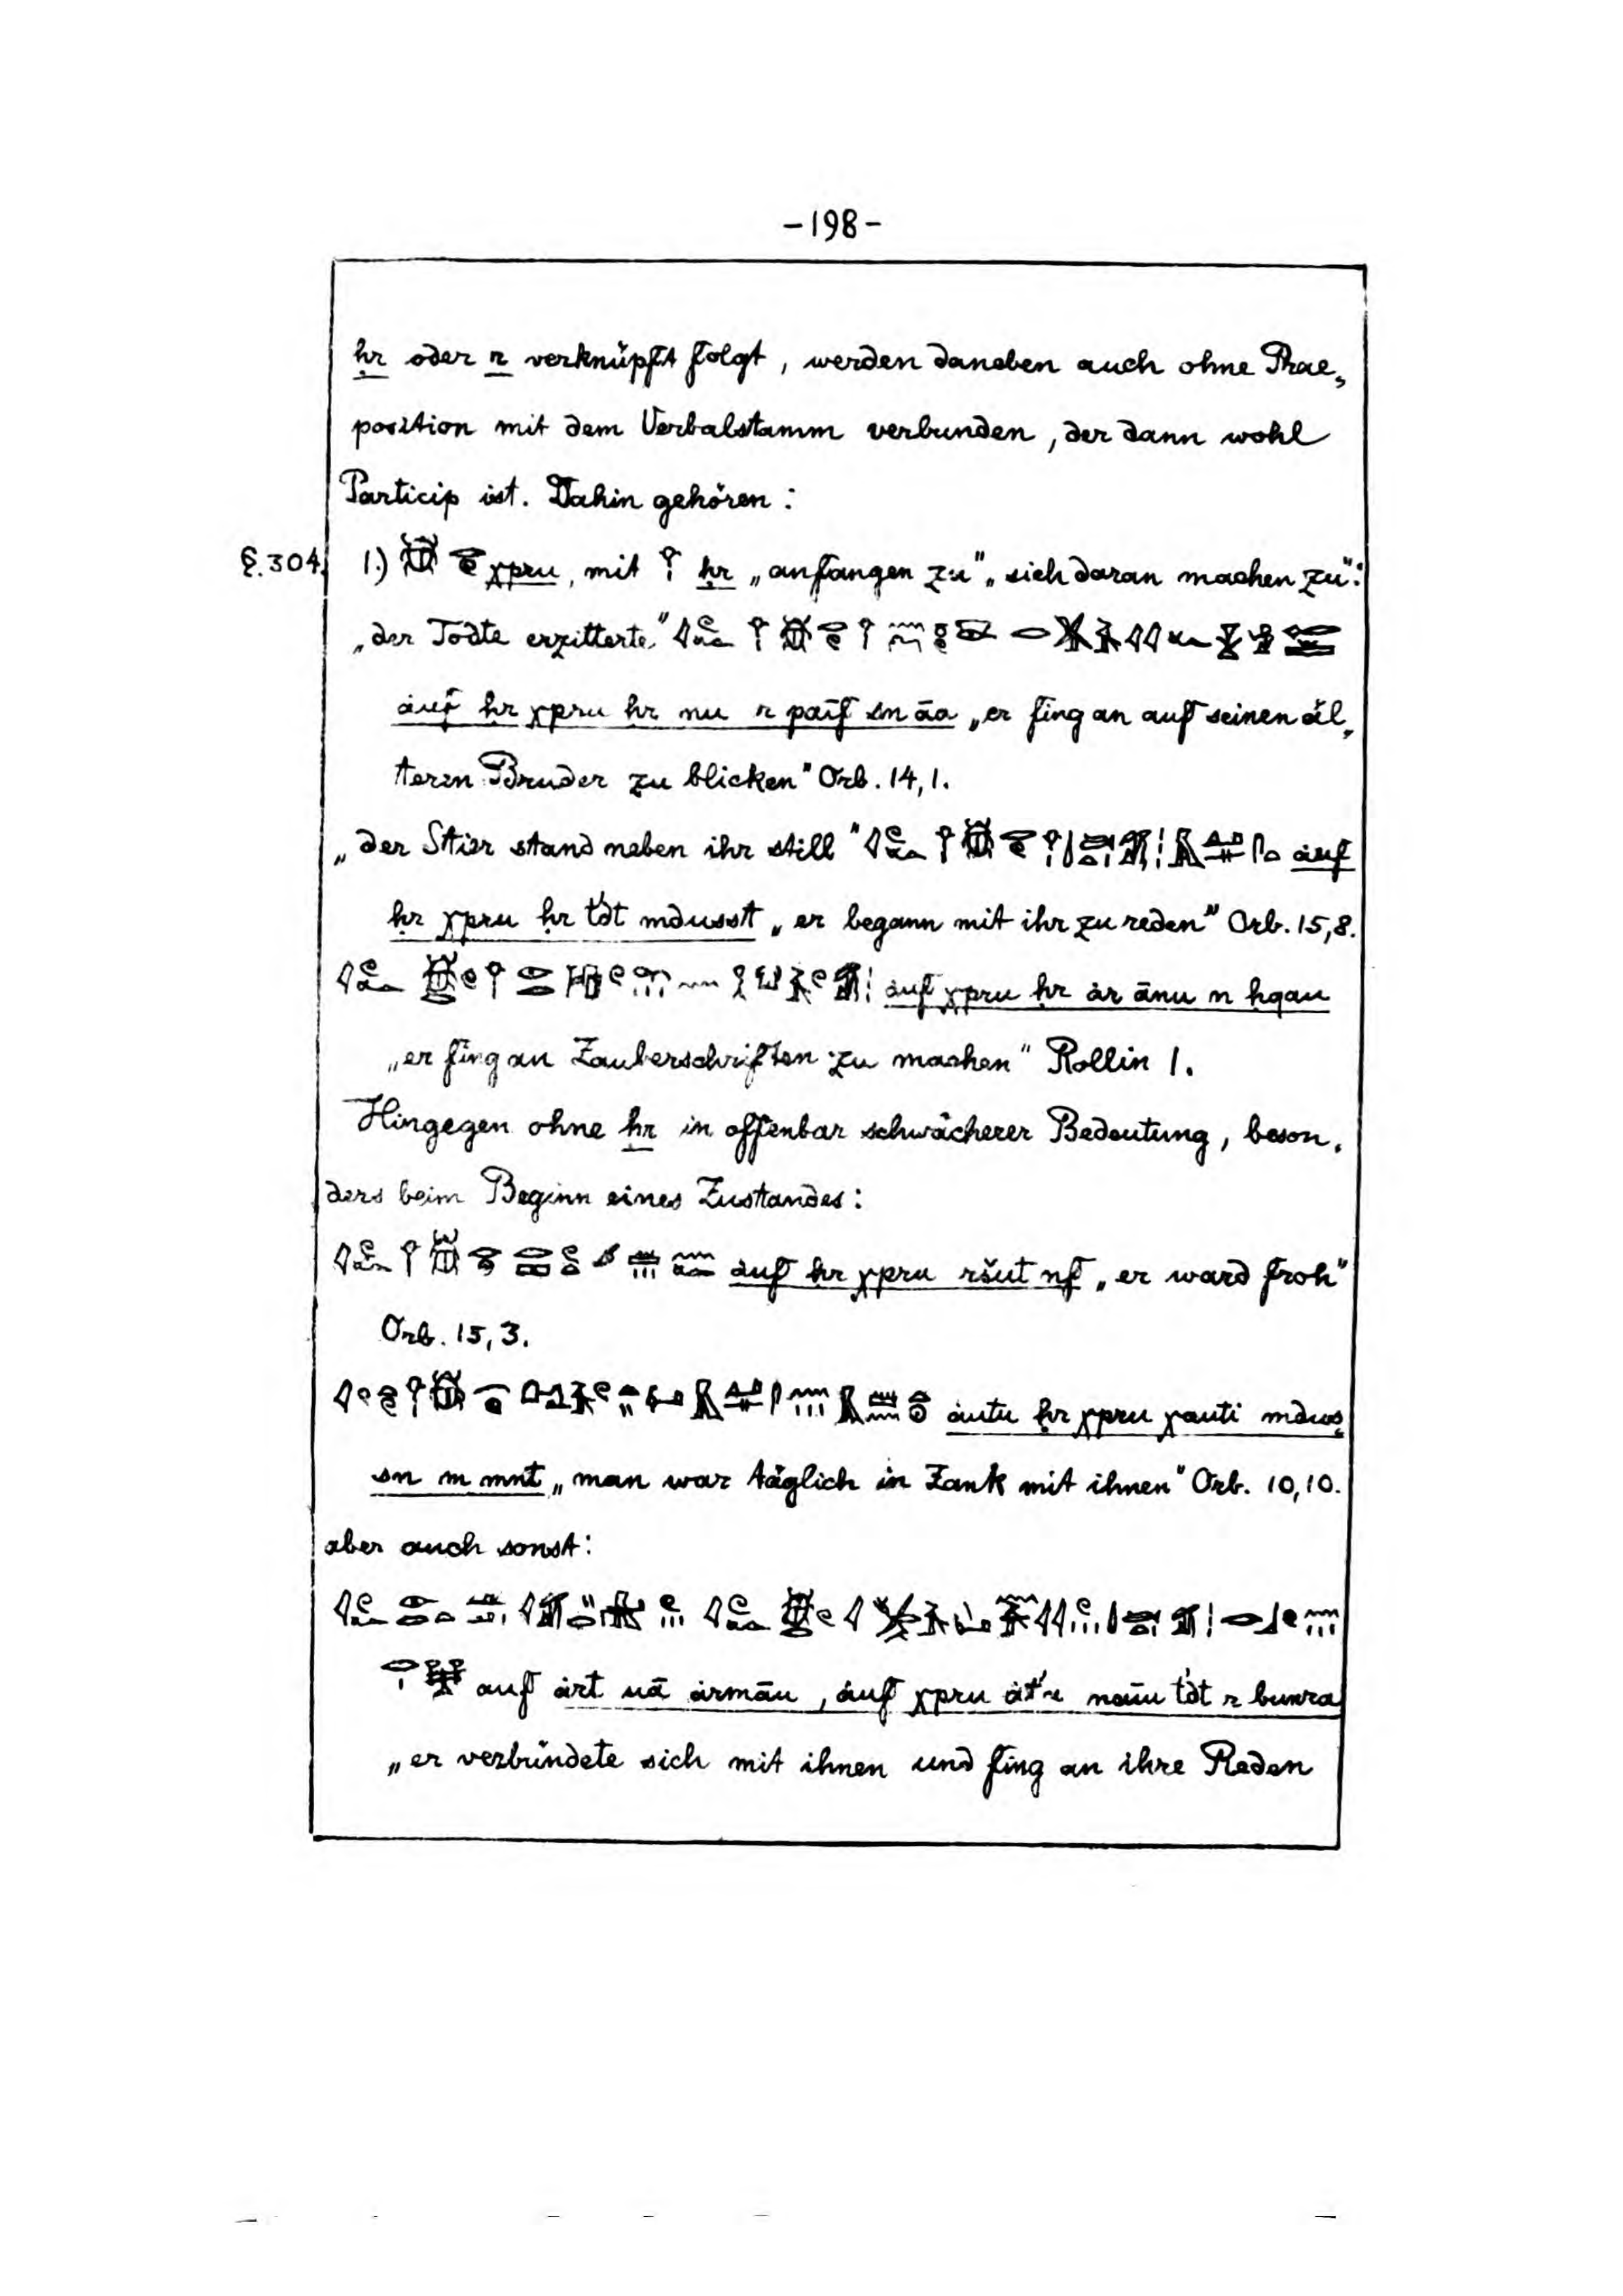 -198-
ḥr oder r verknüpft folgt, werden daneben auch ohne Prae,
position mit dem Verbalstamm verbunden, der dann wohl
Particip ist. Dahin gehören:
§.304. 1.) χpru, mit ḥr „anfangen zu" „sich daran machen zu":
„der Todte erzitterte"
áuf ḥr χpru ḥr nu r paif sn āa „er fing an auf seinen äl,
teren Bruder zu blicken" Orb. 14,1.
„der Stier stand neben ihr still" áuf
ḥr χpru ḥr t'dt mdusst „er begann mit ihr zu reden" Orb. 15,8.
áuf χpru ḥr ár ānu n ḥqau
„er fing an Zauberschriften zu machen" Rollin 1.
Hingegen ohne ḥr in offenbar schwächerer Bedeutung, beson,
ders beim Beginn eines Zustandes:
áuf ḥr χpru ršut nf „er ward froh"
Orb. 15,3.
áutu ḥr χpru χauti mdus
sn m mnt „man war täglich in Zank mit ihnen" Orb. 10,10.
aber auch sonst:
auf árt uā ármāu, áuf χpru naiu t'dt r bunra
„er verbündete sich mit ihnen und fing an ihre Reden